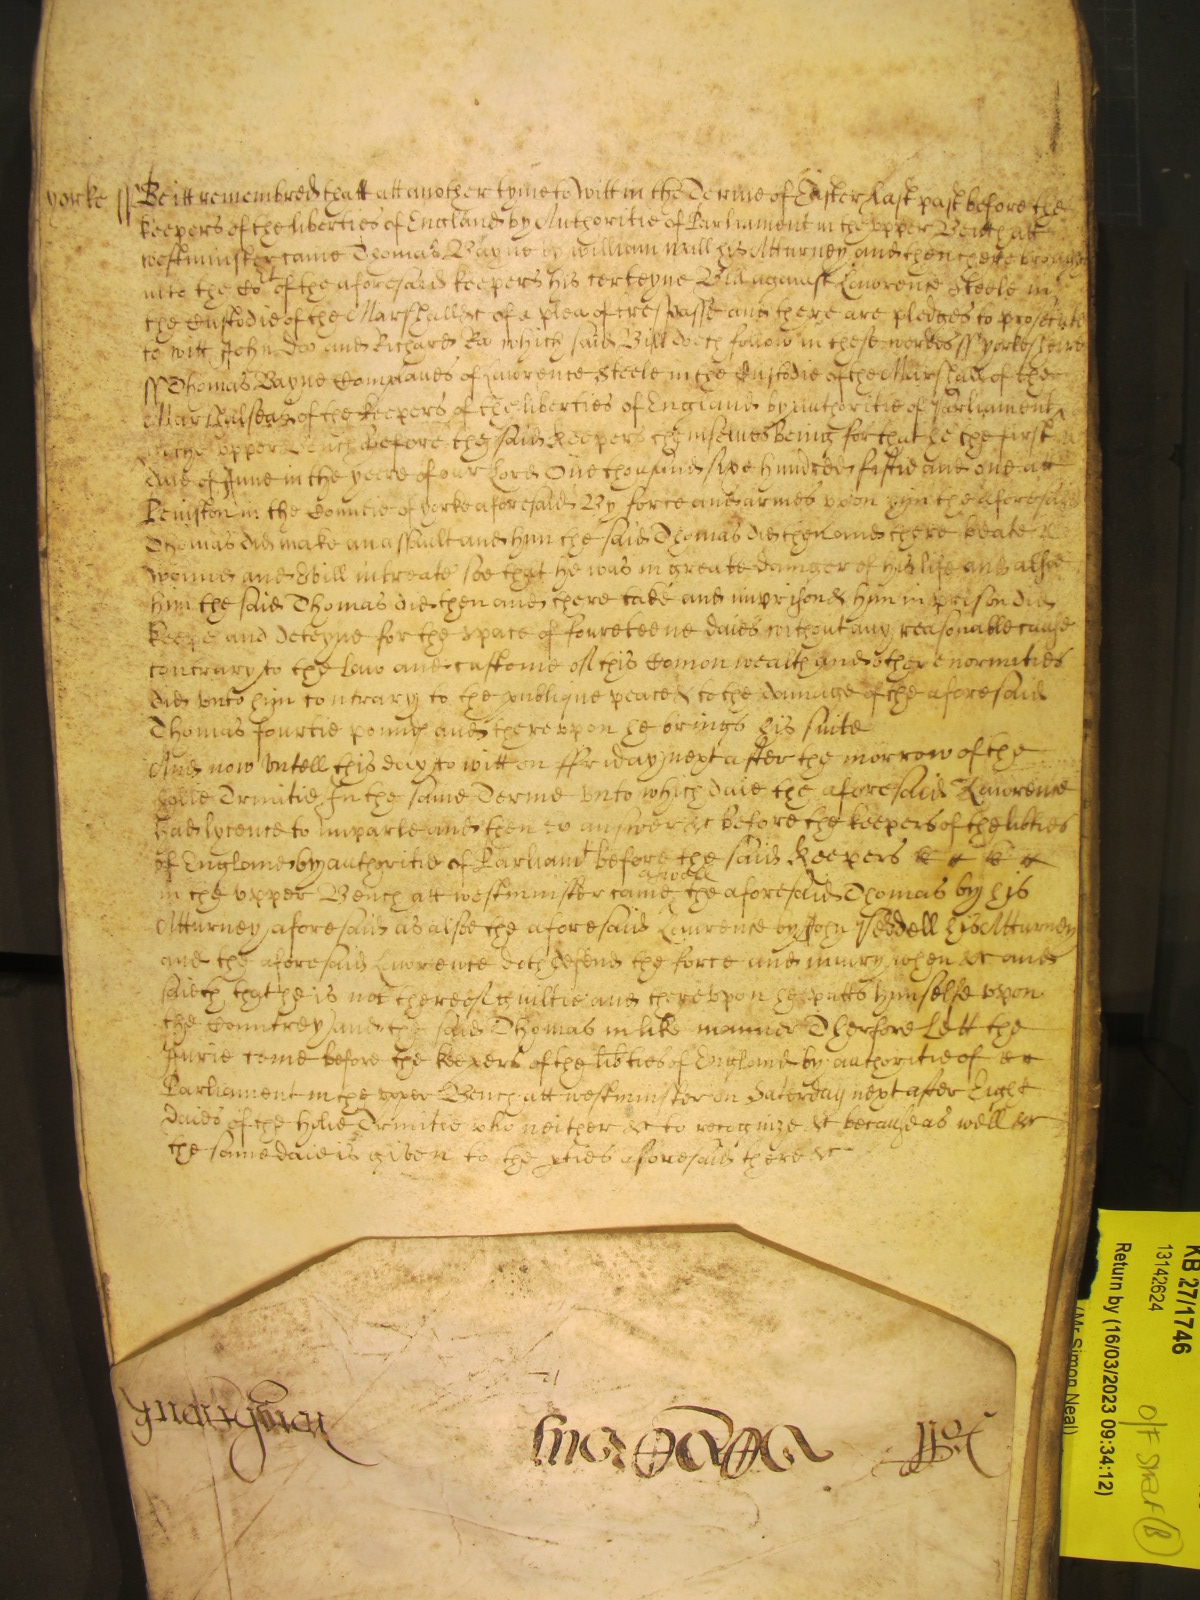 yorke ss Be itt remembred thatt att another tyme to witt in the Terme of Easter last past before the
keepers of the liberties of England by Authoritie of Parliament in the upper Bench att
westminister came Thomas Bayne by william Will his Atturney and then there brought
into the Co:rt of the aforesaid keepers his certeyne Bill against Lawrence Steele in
the Custodie of the Marshall &c of a plea of trespasse and there are pledges to prosecute
to witt John Doo and Richard Roo which said Bill doth follow in these wordes ss yorkeshire
ss Thomas Bayne Complaines of Lawrence Steele in the Custodie of the Marshall of the
Marshalsea of the keepers of the liberties of England by authoritie of Parliament
in the upper Bench before the said keepers themselves being for that he the first
daie of June in the yeere of our Lord One thousand sixe hundred fiftie and one att
Peniston in the Countie of yorke aforesaid By force and armes upon him the aforesaid
Thomas did make an assault and him the said Thomas did then and there beate
wound and Evill intreate soe that he was in greate danger of his life and alsoe
him the said Thomas did then and there take and imprisond him in prison did
keepe and deteyne for the space of foureteene daies without any reasonable cause
contrary to the law and custome of this Comon wealth and other enormities
did unto him contrary to the publique peace & to the damage of the aforesaid
Thomas fourtie pound and thereupon he brings his suite
And now untill this day to witt on ffriday next after the morrow of the
holie Trinitie In the same Terme unto which daie the aforesaid Lawrence
had lycence to Imparle and then to answer &c before the keepers of the libties
of England by authoritie of Parliamt before the said keepers &c &c &c &c
in the upper Bench att westminister came aswell the aforesaid Thomas by his
Atturney aforesaid as alsoe the aforesaid Lawrence by John his Atturney
and the aforesaid Lawrence doth defend the force and iniury when &c and
saieth that he is not thereof guiltie and thereupon he putts himselfe upon
the Countrey and the said Thomas in like manner Therfore Lett the
Jurie come before the keepers of the libties of England by authoritie of &c
Parliament in the upper Bench att westminster on Saterday next after Eight
daies of the Holie Trinitie who neither &c to recognize &c because as well &c
the same daie is given to the pties aforesaid there &c
KB 27/1746
13142624
Return by (16/03/2023 09:34:12)
(Mr Simon Neal)